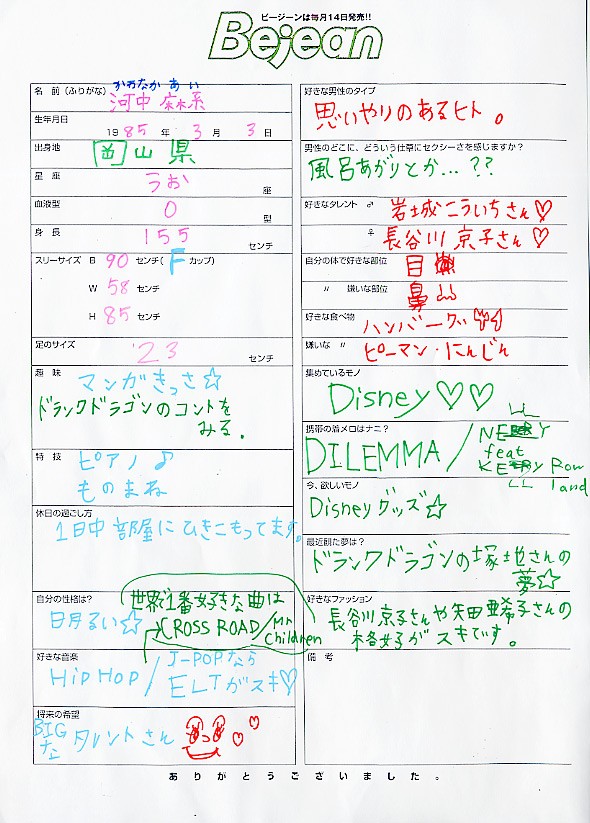 ビージーンは毎月14日発売!!
Bejean
名 前 (ふりがな) かわなか あい
河中 麻系
生年月日
1985 年 3 月 3 日
出身地
岡山県
星 座
うお 座
血液型
O 型
身 長
155 センチ
スリーサイズ B 90 センチ ( F カップ)
W 58 センチ
H 85 センチ
足のサイズ
23 センチ
趣 味
マンガきっさ☆
ドランクドラゴンのコントを
みる.
特 技
ピアノ♪
ものまね
休日の過ごし方
1日中部屋にひきこもってます。
自分の性格は?
明るい☆
世界で1番好きな曲は
CROSS ROAD/Mr
children
好きな音楽
HipHop/J-POPなら
ELTがスキ♡
将来の希望
BIG
な タレントさん
好きな男性のタイプ
思いやりのあるヒト。
男性のどこに、どういう仕草にセクシーさを感じますか?
風呂あがりとか…??
好きなタレント ♂
岩城こういちさん♡
♀
長谷川 京子さん♡
自分の体で好きな部位
目
〃 嫌いな部位
鼻
好きな食べ物
ハンバーグ
嫌いな 〃
ピーマン・にんじん
集めているモノ
Disney♡♡
携帯の着メロはナニ?
DILEMMA/NELLY
feat
KELLY Row
land
今、欲しいモノ
Disneyグッズ☆
最近観た夢は?
ドランクドラゴンの塚地さんの
夢☆
好きなファッション
長谷川京子さんや矢田亜希子さんの
格好がスキです。
備 考
ありがとうございました。